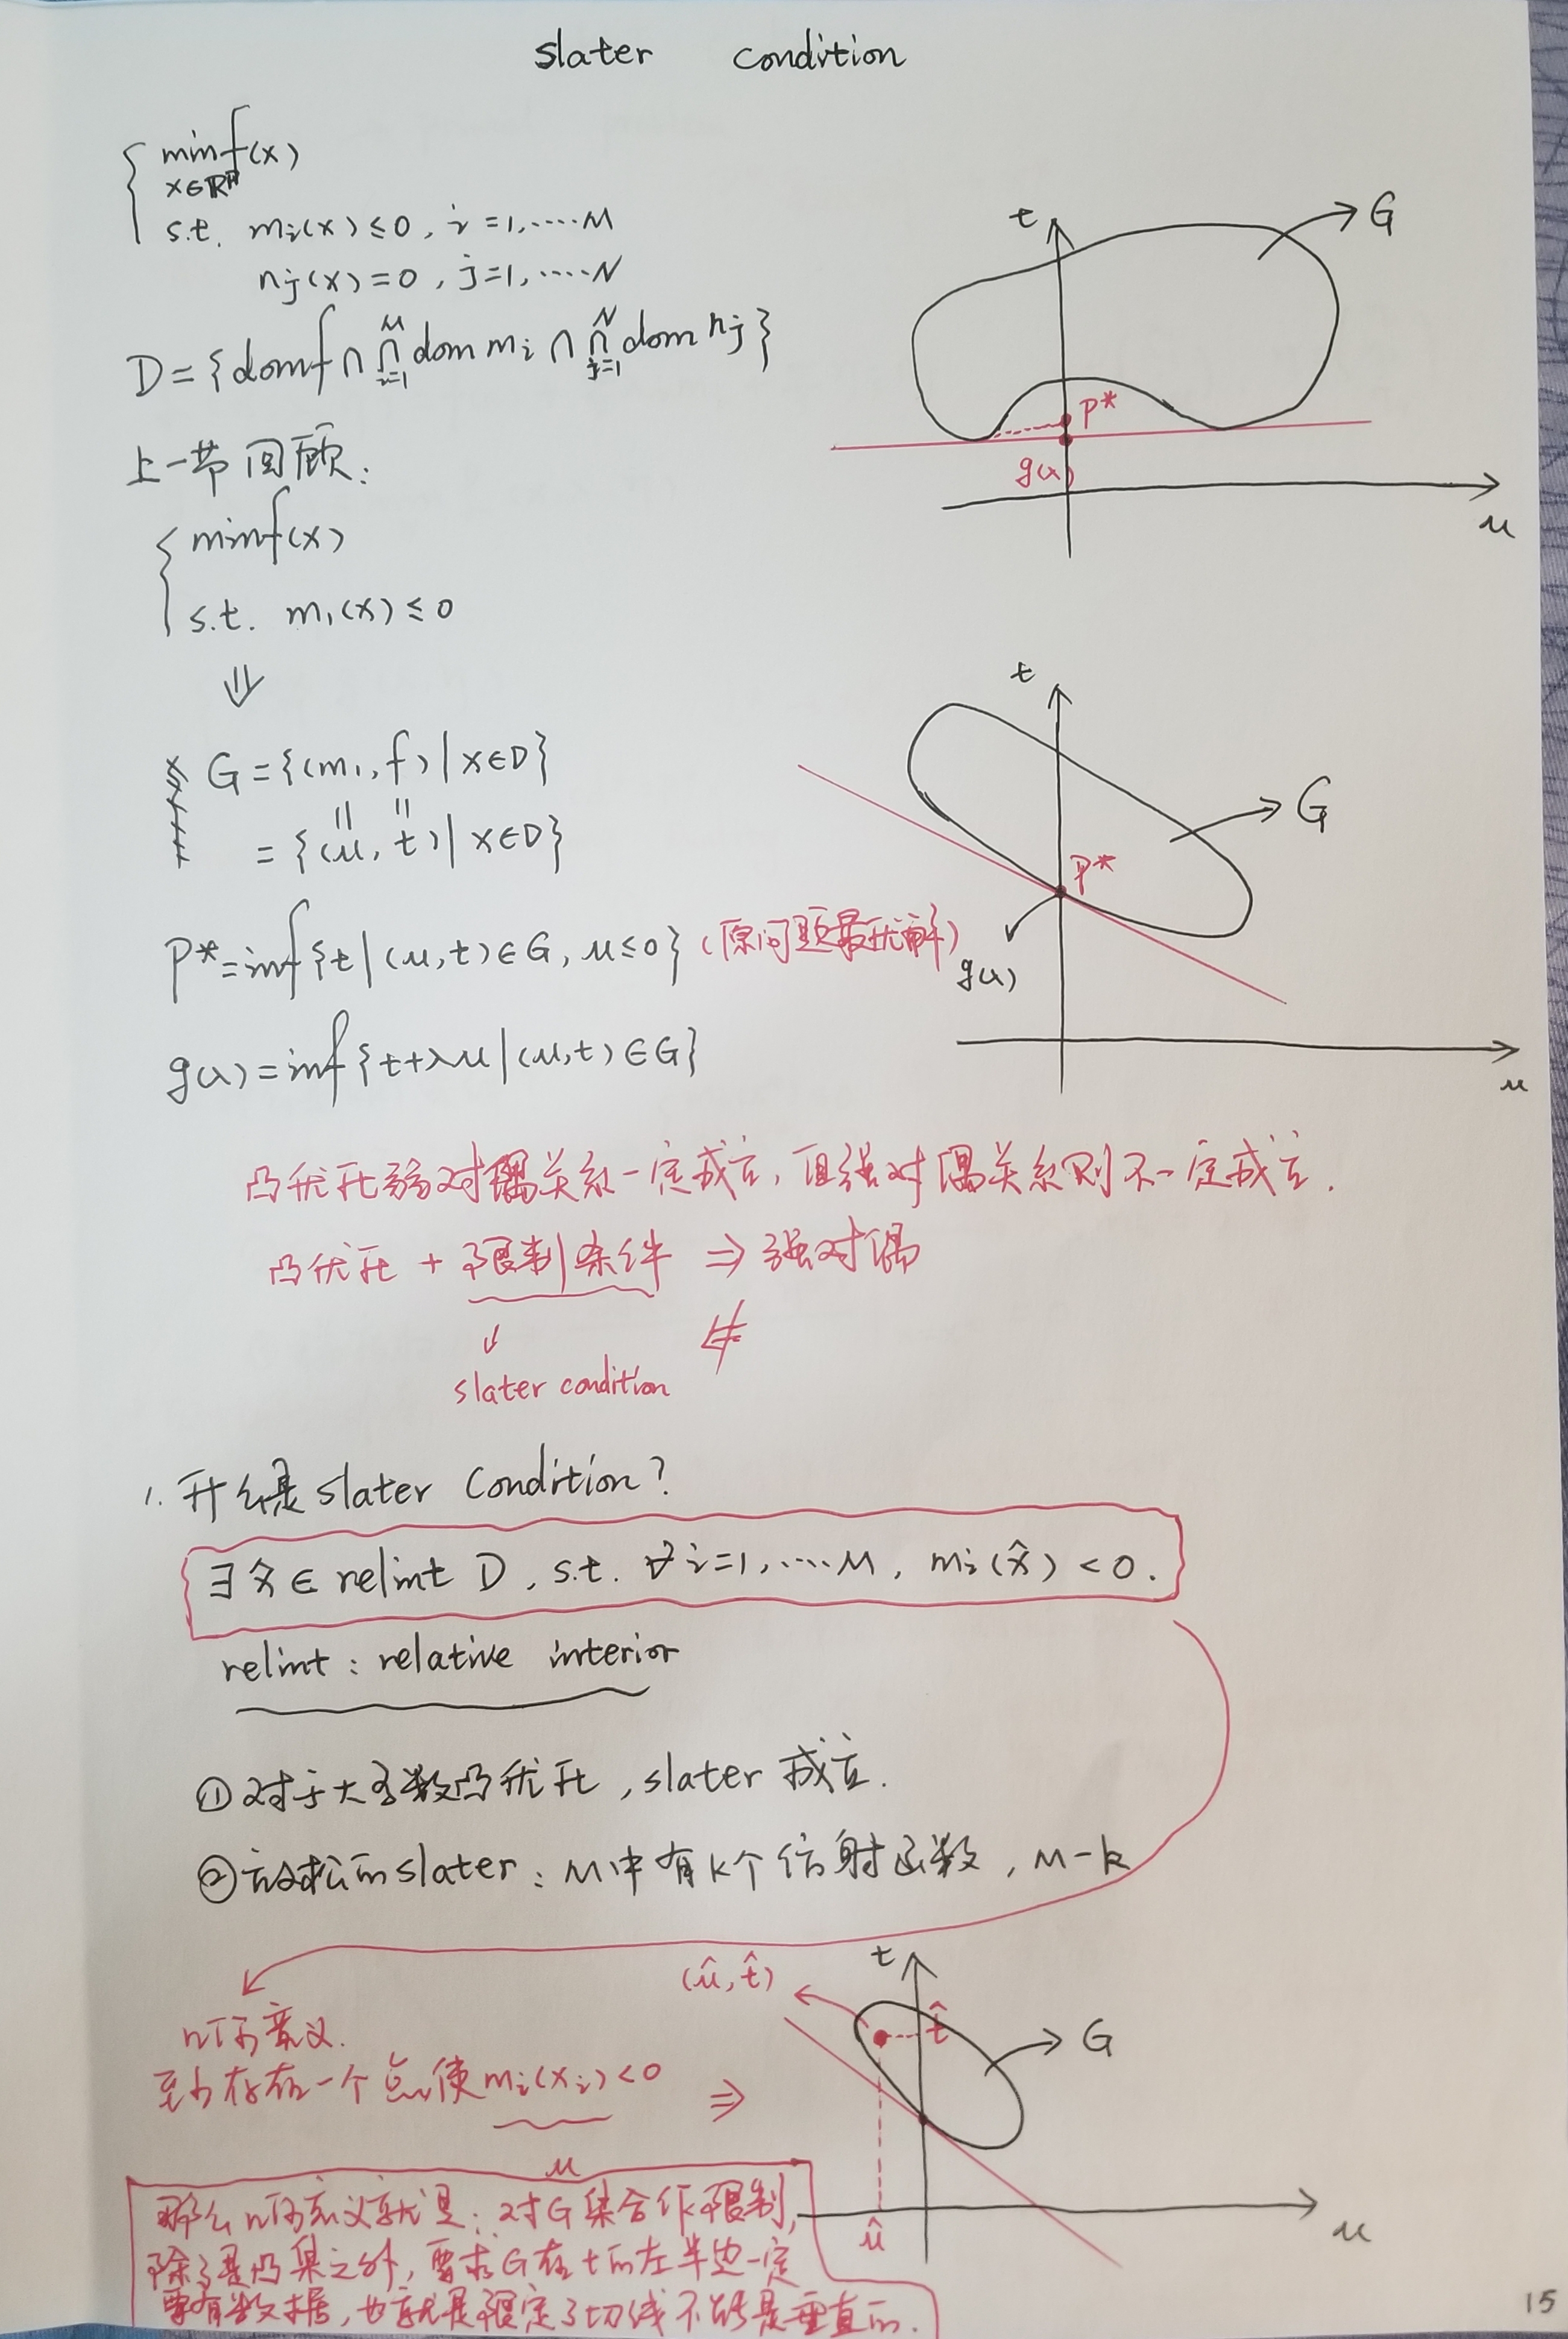 slater condition
min f(x)
x∈ℝᵖ
s.t. mᵢ(x) ≤ 0, i = 1, ····· M
nⱼ(x) = 0, j = 1, ····· N
D = {dom f ∩ ⋂ᵢ₌₁ᴹ dom mᵢ ∩ ⋂ⱼ₌₁ᴺ dom nⱼ}
上一节回顾:
min f(x)
s.t. m₁(x) ≤ 0
⇓
G = {(m₁, f) | x∈D}
= {(u, t) | x∈D}
P* = inf{t | (u, t) ∈ G, u ≤ 0} (原问题最优解)
g(λ) = inf{t+λu | (u, t) ∈ G}
t
G
P*
g(λ)
u
t
G
P*
g(λ)
u
凸优化弱对偶关系一定成立, 但强对偶关系则不一定成立.
凸优化 + 限制条件 ⇒ 强对偶
⇍
slater condition
1. 什么是 slater condition?
∃ x̂ ∈ relint D, s.t. ∀ i = 1, ····· M, mᵢ(x̂) < 0.
relint : relative interior
① 对于大多数凸优化, slater 成立.
② 放松的 slater : M中有k个仿射函数, M-k
几何意义.
至少存在一个点使 mᵢ(xᵢ) < 0 ⇒
u
(û, t̂)
t
t̂
G
û
u
那么几何意义就是: 对G集合作限制,
除了是凸集之外, 要求G在t的左半边一定
要有数据, 也就是限定了切线不能是垂直的.
15